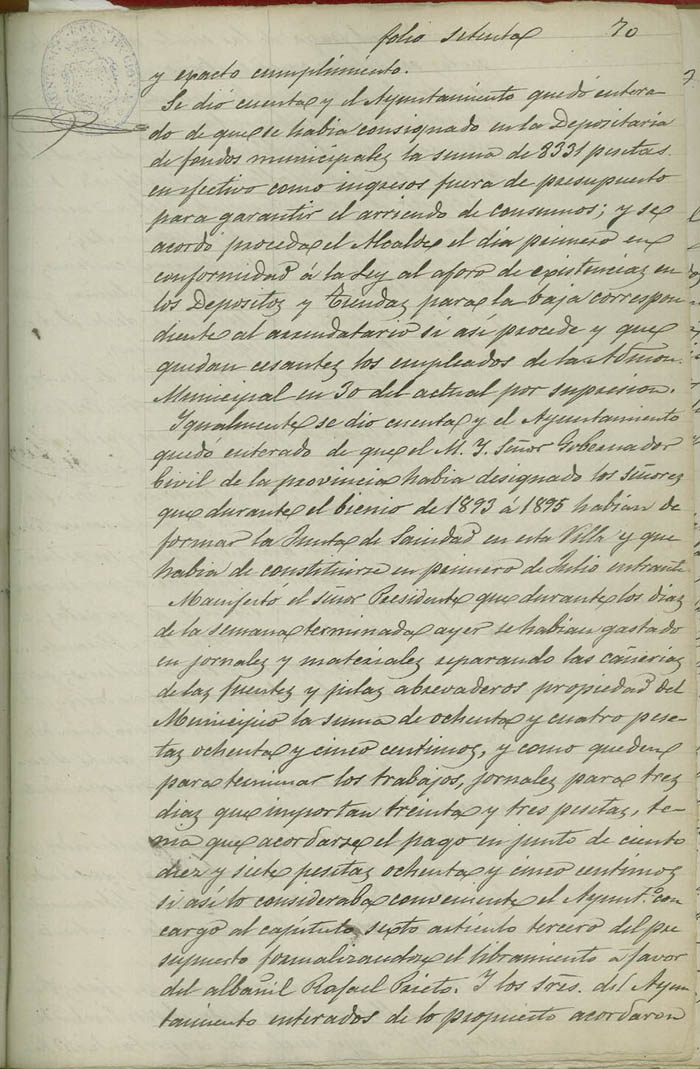 folio setenta 70
y exacto cumplimiento.
Se dió cuenta y el Ayuntamiento quedó entera-
do de que se habia consignado en la Depositaria
de fondos municipales la suma de 8331 pesetas
en efectivo como ingresos fuera de presupuesto
para garantir el arriendo de consumos; y se
acordó proceda el Alcalde el dia primero en
conformidad á la Ley al aforo de existencias en
los Depositos y Tiendas para la baja correspon
diente al arrendatario si así procede y que
quedan cesantes los empleados de la Admon.
Municipal en 30 del actual por supresion.
Igualmente se dio cuenta y el Ayuntamiento
quedó enterado de que el M. I. Señor Gobernador
Civil de la provincia habia designado los señores
que durante el bienio de 1893 á 1895 habian de
formar la Junta de Sanidad en esta Villa y que
habia de constituirse en primero de Julio entrante
Manifesto el señor Presidente que durante los dias
de la semana terminada ayer se habian gastado
en jornales y materiales reparando las cañerias
de las fuentes y pilas abrevaderos propiedad del
Municipio la suma de ochenta y cuatro pese-
tas ochenta y cinco centimos, y como queden
para terminar los trabajos, jornales para tres
dias que importan treinta y tres pesetas, te-
nia que acordarse el pago en junto de ciento
diez y siete pesetas ochenta y cinco centimos
si así lo consideraba conveniente el Ayunt.º con
cargo al capítulo sexto artículo tercero del pre
supuesto formalizandose el libramiento a favor
del albañil Rafael Prieto. Y los Sres. del Ayun
tamiento enterados de lo propuesto acordaron